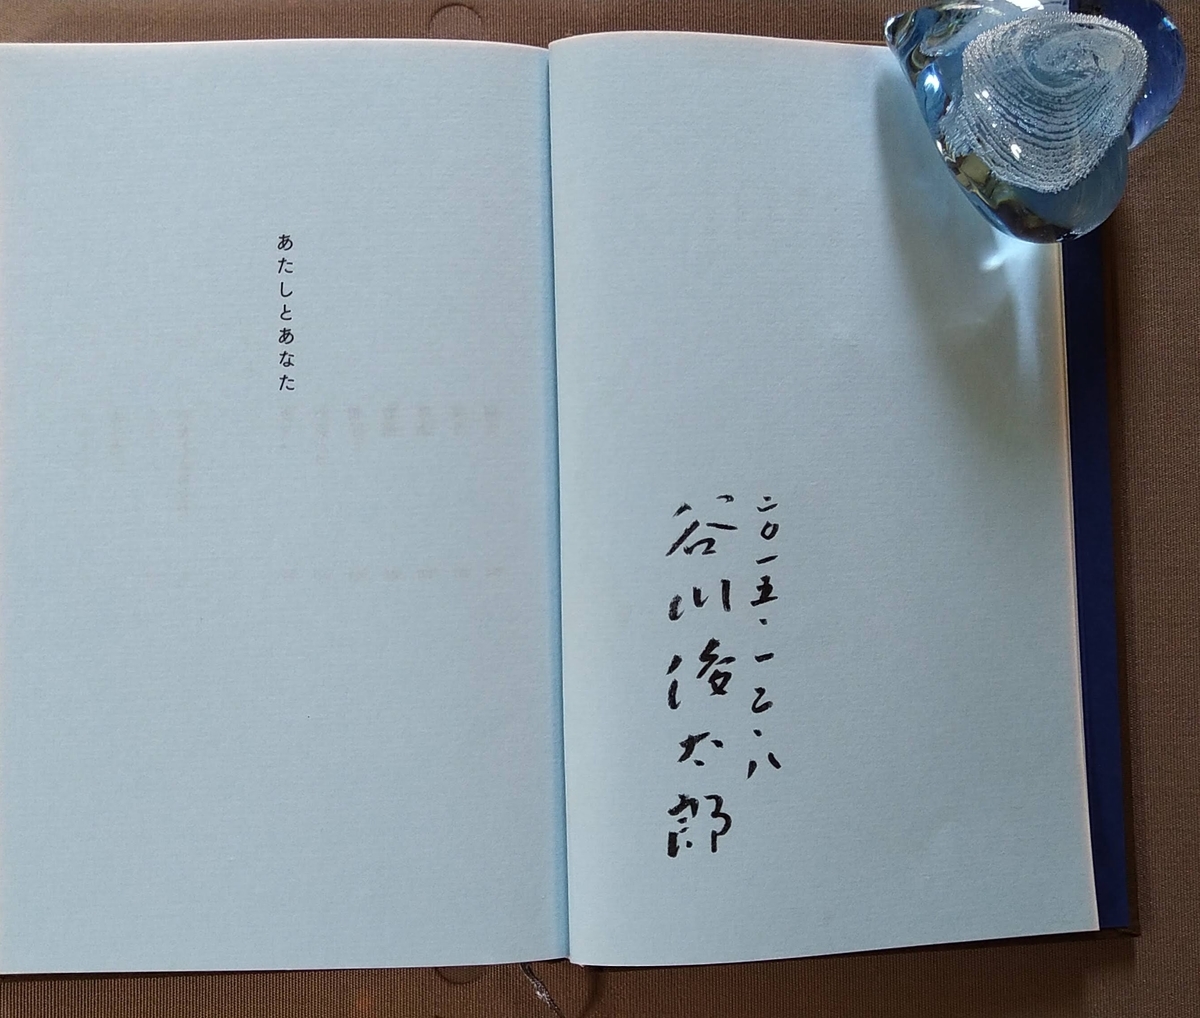 二〇一五・一二・八
谷川俊太郎
あたしとあなた